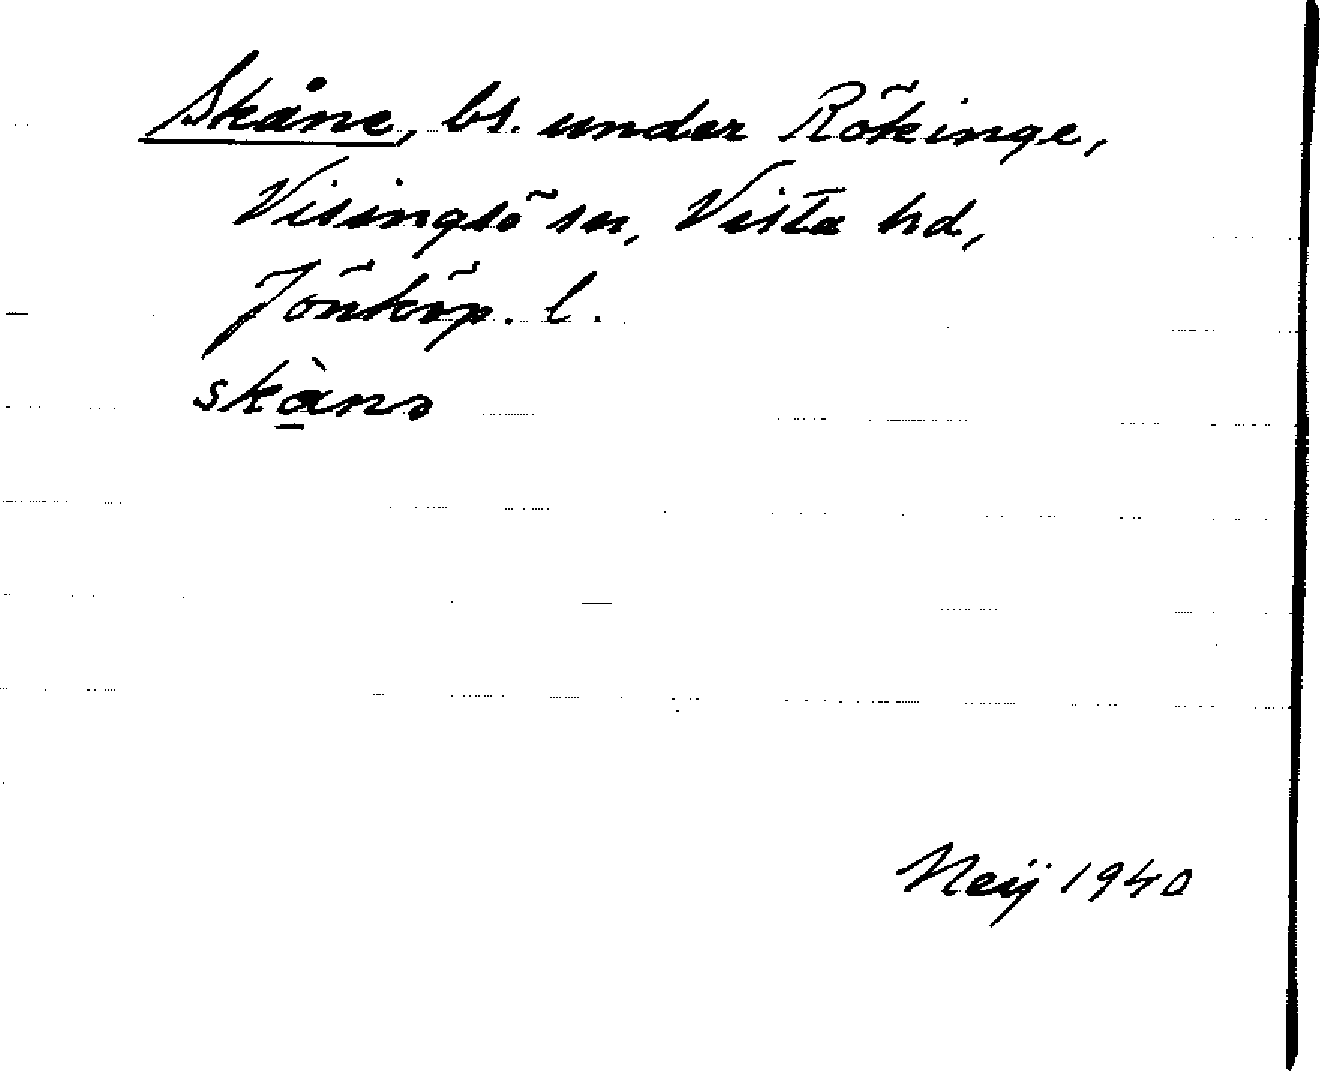 Skåne, bs. under Rökinge,
Visingsö sn, Vista hd,
Jönköp. l.
skà̱nə
Neij 1940